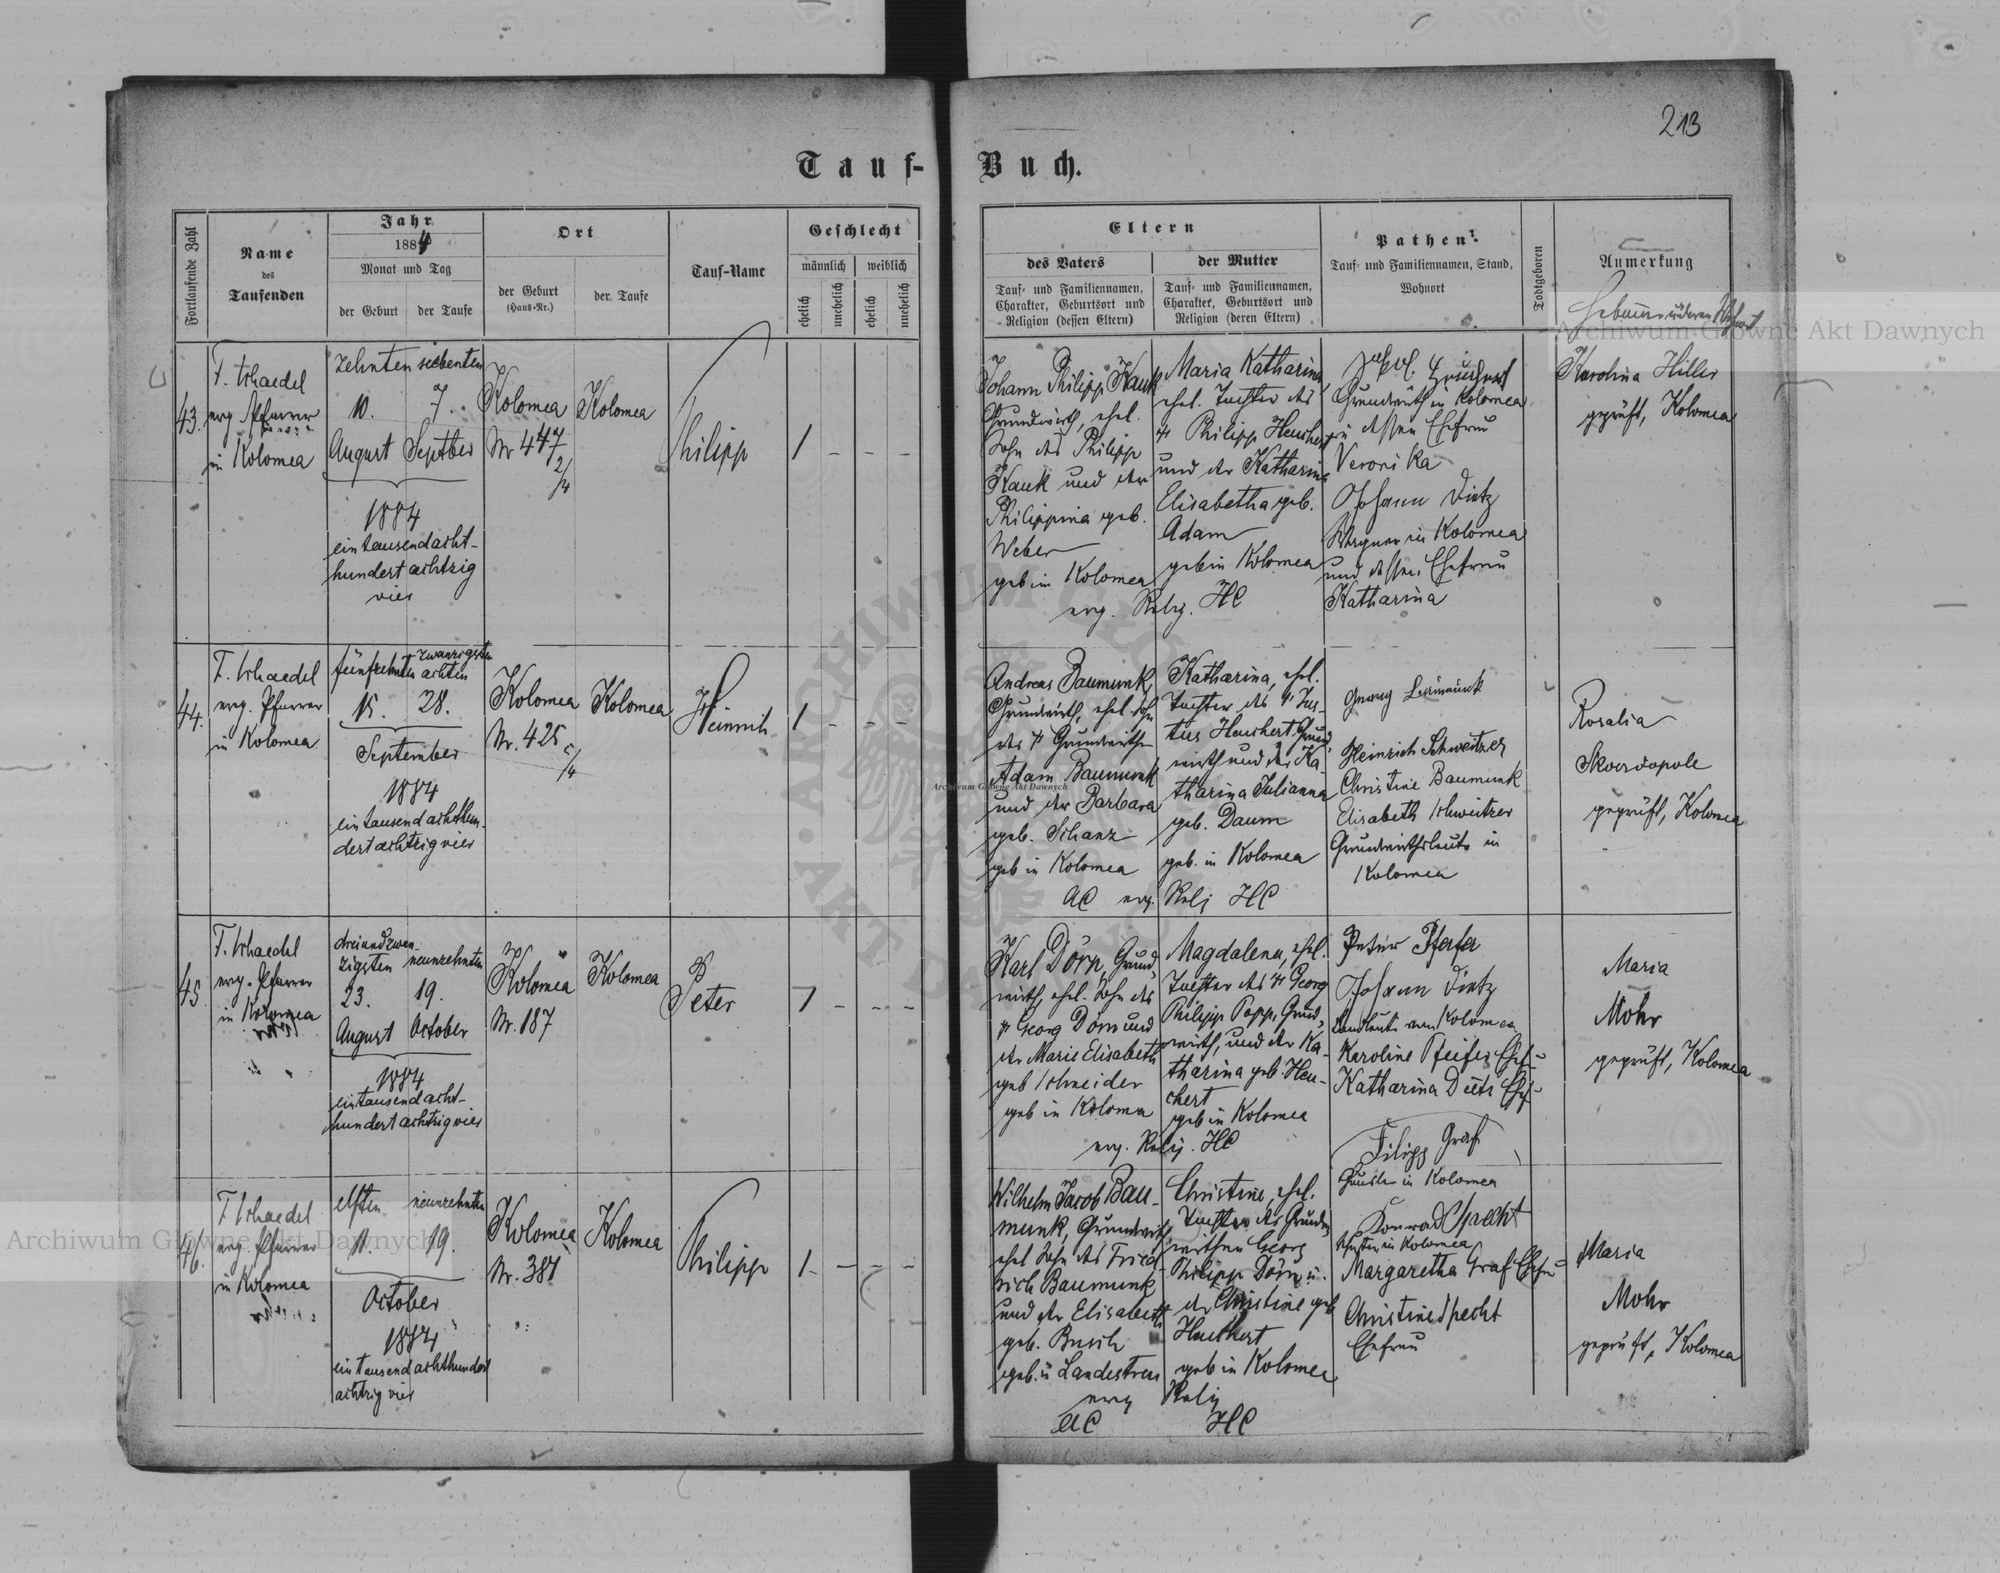 213
Tauf-Buch.
Fortlaufende Zahl
Name
des
Taufenden
Jahr
1884
Monat und Tag
der Geburt
der Taufe
Ort
der Geburt
(Haus-Nr.)
der Taufe
Tauf-Name
Geschlecht
männlich
weiblich
ehelich
unehelich
ehelich
unehelich
Eltern
des Vaters
Tauf- und Familiennamen,
Charakter, Geburtsort und
Religion (dessen Eltern)
der Mutter
Tauf- und Familiennamen,
Charakter, Geburtsort und
Religion (deren Eltern)
Pathen
Tauf- und Familiennamen, Stand,
Wohnort
Todtgeboren
Anmerkung
Archiwum Główne Akt Dawnych
43.
F. Schaedel
evg. Pfarrer
in Kolomea
zehnten siebenten
10. 7.
August September
1884
ein tausend acht-
hundert achtzig
vier
Kolomea
Nr 447
2/4
Kolomea
Philipp
1 - - -
Johann Philipp Kauk
Grundwirth, ehel.
Sohn des Philipp
Kauk und der
Philippina geb.
Weber
geb in Kolomea
Maria Katharina
ehel. Tochter des
Philipp Heuchert
und der Katharina
Elisabetha geb.
Adam
geb in Kolomea
evg. Relig. HC
Grundwirth in Kolomea
u dessen Ehefrau
Veronika
Johann Dietz
Wagner in Kolomea
und dessen Ehefrau
Katharina
Karolina Hiller
geprüft, Kolomea
44.
F. Schaedel
evg. Pfarrer
in Kolomea
fünfzehnten zwanzigsten
achten
15. 28.
September
1884
ein tausend achthun-
dert achtzig vier
Kolomea
Nr. 425
Kolomea
Heinrich
1 - - -
Andreas Baumunk,
Grundwirth, ehel Sohn
des Grundwirthen
Adam Baumunk
und der Barbara
geb. Schanz
geb in Kolomea
AC evg.
Katharina, ehel.
Tochter des Jus-
tus Heuchert Grund-
wirth und der Ka-
tharina Julianna
geb. Daum
geb. in Kolomea
Relg HC
Georg Baumunk
Heinrich Schweitzer
Christine Baumunk
Elisabeth Schweitzer
Grundwirthsleute in
Kolomea
Rosalia
Skordopole
geprüft, Kolomea
45.
F. Schaedel
evg. Pfarrer
in Kolomea
dreiundzwan-
zigsten neunzehnten
23. 19.
August October
1884
ein tausend acht-
hundert achtzig vier
Kolomea
Nr. 187
Kolomea
Peter
1 - - -
Karl Dörn, Grund-
wirth, ehel. Sohn des
Georg Dörn und
der Marie Elisabeth
geb Schneider
geb in Kolomea
Magdalena, ehel.
Tochter des Georg
Philipp Popp, Grund-
wirth, und der Ka-
tharina geb. Heu-
chert
geb in Kolomea
evg. Relg. HC
Peter Pfeifer
Johann Dietz
Landleute von Kolomea
Karoline Pfeifer
Katharina Diets
Maria
Mohr
geprüft, Kolomea
46.
F. Schaedel
evg. Pfarrer
in Kolomea
elften neunzehnten
11. 19.
October
1884
ein tausend achthundert
achtzig vier
Kolomea
Nr. 381
Kolomea
Philipp
1 - - -
Wilhelm Jacob Bau-
munk, Grundwirth,
ehel Sohn des Fried-
rich Baumunk
und der Elisabeth
geb. Busch
geb. in Landestreu
evg Relig
AC HC
Christine, ehel.
Tochter des Grund-
wirthen Georg
Philipp Dörn u.
der Christine geb
Heuchert
geb in Kolomea
Filipp Graf
in Kolomea
Konrad Specht
in Kolomea
Margaretha Graf Ehefrau
Christine Specht
Ehefrau
Maria
Mohr
geprüft, Kolomea
Archiwum Główne Akt Dawnych
Archiwum Główne Akt Dawnych